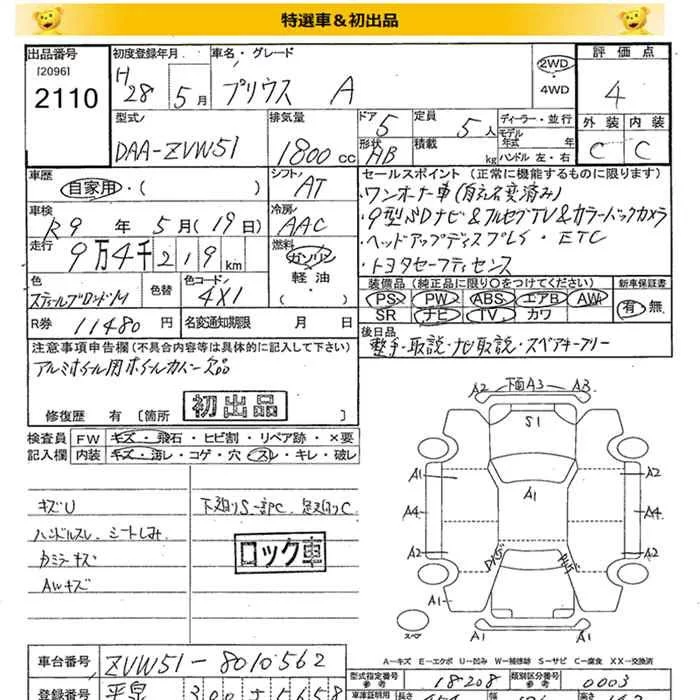 特選車&初出品
出品番号
[2096]
2110
初度登録年月
H
28 5月
車名・グレード
プリウス A
2WD
4WD
評価点
4
外装 内装
C C
型式
DAA-ZVW51
排気量
1800 cc
ドア 5
形状 HB
定員 5人
積載 kg
ディーラー・並行
モデル年式 年
ハンドル 左・右
車歴
自家用・( )
シフト
AT
車検
R9年5月(19日)
冷房
AAC
走行
9万4千219km
燃料
ガソリン
軽油
( )
セールスポイント(正常に機能するものに限ります)
・ワンオーナー車(自社名変済み)
・9型SDナビ&フルセグTV&カラーバックカメラ
・ヘッドアップディスプレS・ETC
・トヨタセーフティセンス
色
スティールブロンドM
色替
色コード
4X1
装備品(純正品に限り○をつけてください)
PS PW ABS エアB AW
SR ナビ TV カワ
新車保証書
有 無
R券 11480円
名変通知期限 月 日
後日品
整手・取説・ナビ取説・スペアキー
注意事項申告欄(不具合内容等は具体的に記入して下さい)
アルミホイール用ホイールカバー欠品
初出品
修復歴 有 [箇所 ]
検査員
記入欄
FW キズ・飛石・ヒビ割・リペア跡・×要
内装 キズ・汚レ・コゲ・穴・スレ・キレ・破レ
キズU
ハンドルスレ、シートしみ
カミラーキズ
AWキズ
下廻りS一部C、足廻りC
ロック車
A2 下面A3 A3
S1
A1 A1
A2 A2
A1
A4 A4
A2 A2
A1 A1
スペア
A1 A1
A-キズ E-エクボ U-凹み W-補修跡 S-サビ C-腐食 XX-交換済
車台番号
ZVW51-8010562
型式指定番号
参考
18208
類別区分番号
参考
0003
登録番号
300
5658
車庫証明用
長さ